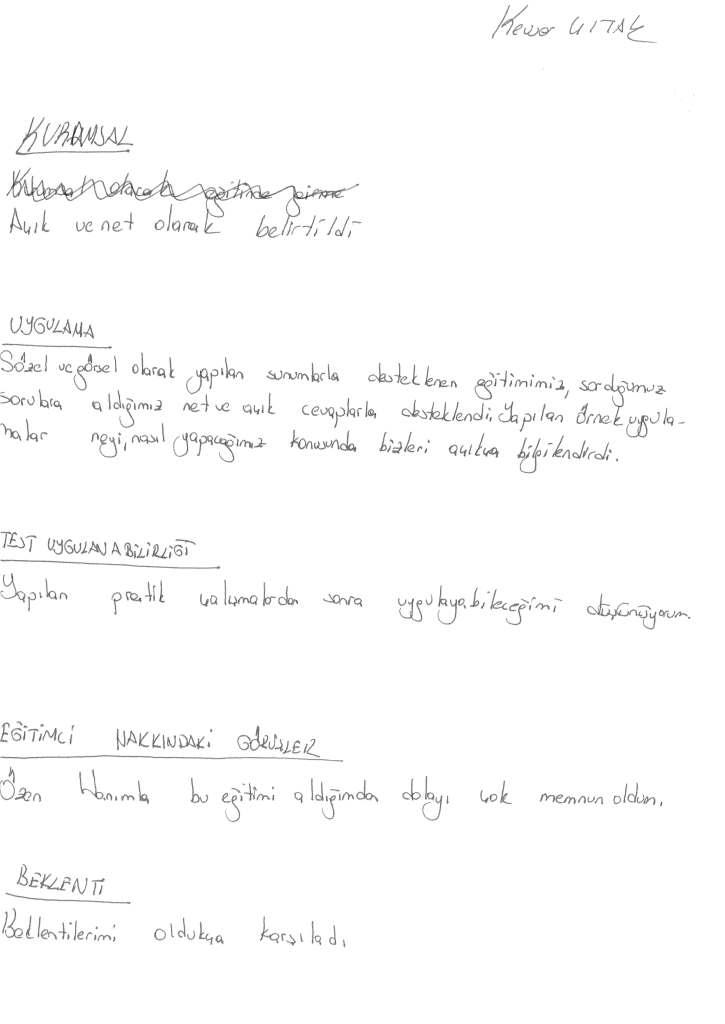 KURAMSAL
Açık ve net olarak belirtildi
UYGULAMA
Sözel ve görsel olarak yapılan sunumlarla desteklenen eğitimimiz, sorduğumuz
sorulara aldığımız net ve açık cevaplarla desteklendi. Yapılan örnek uygula-
malar neyi, nasıl yapacağımız konusunda bizleri açıkca bilgilendirdi.
TEST UYGULANABİLİRLİĞİ
Yapılan pratik çalışmalardan sonra uygulayabileceğimi düşünüyorum.
EĞİTİMCİ HAKKINDAKİ GÖRÜŞLER
Özen Hanımla bu eğitimi aldığımdan dolayı çok memnun oldum.
BEKLENTİ
Beklentilerimi oldukça karşıladı.